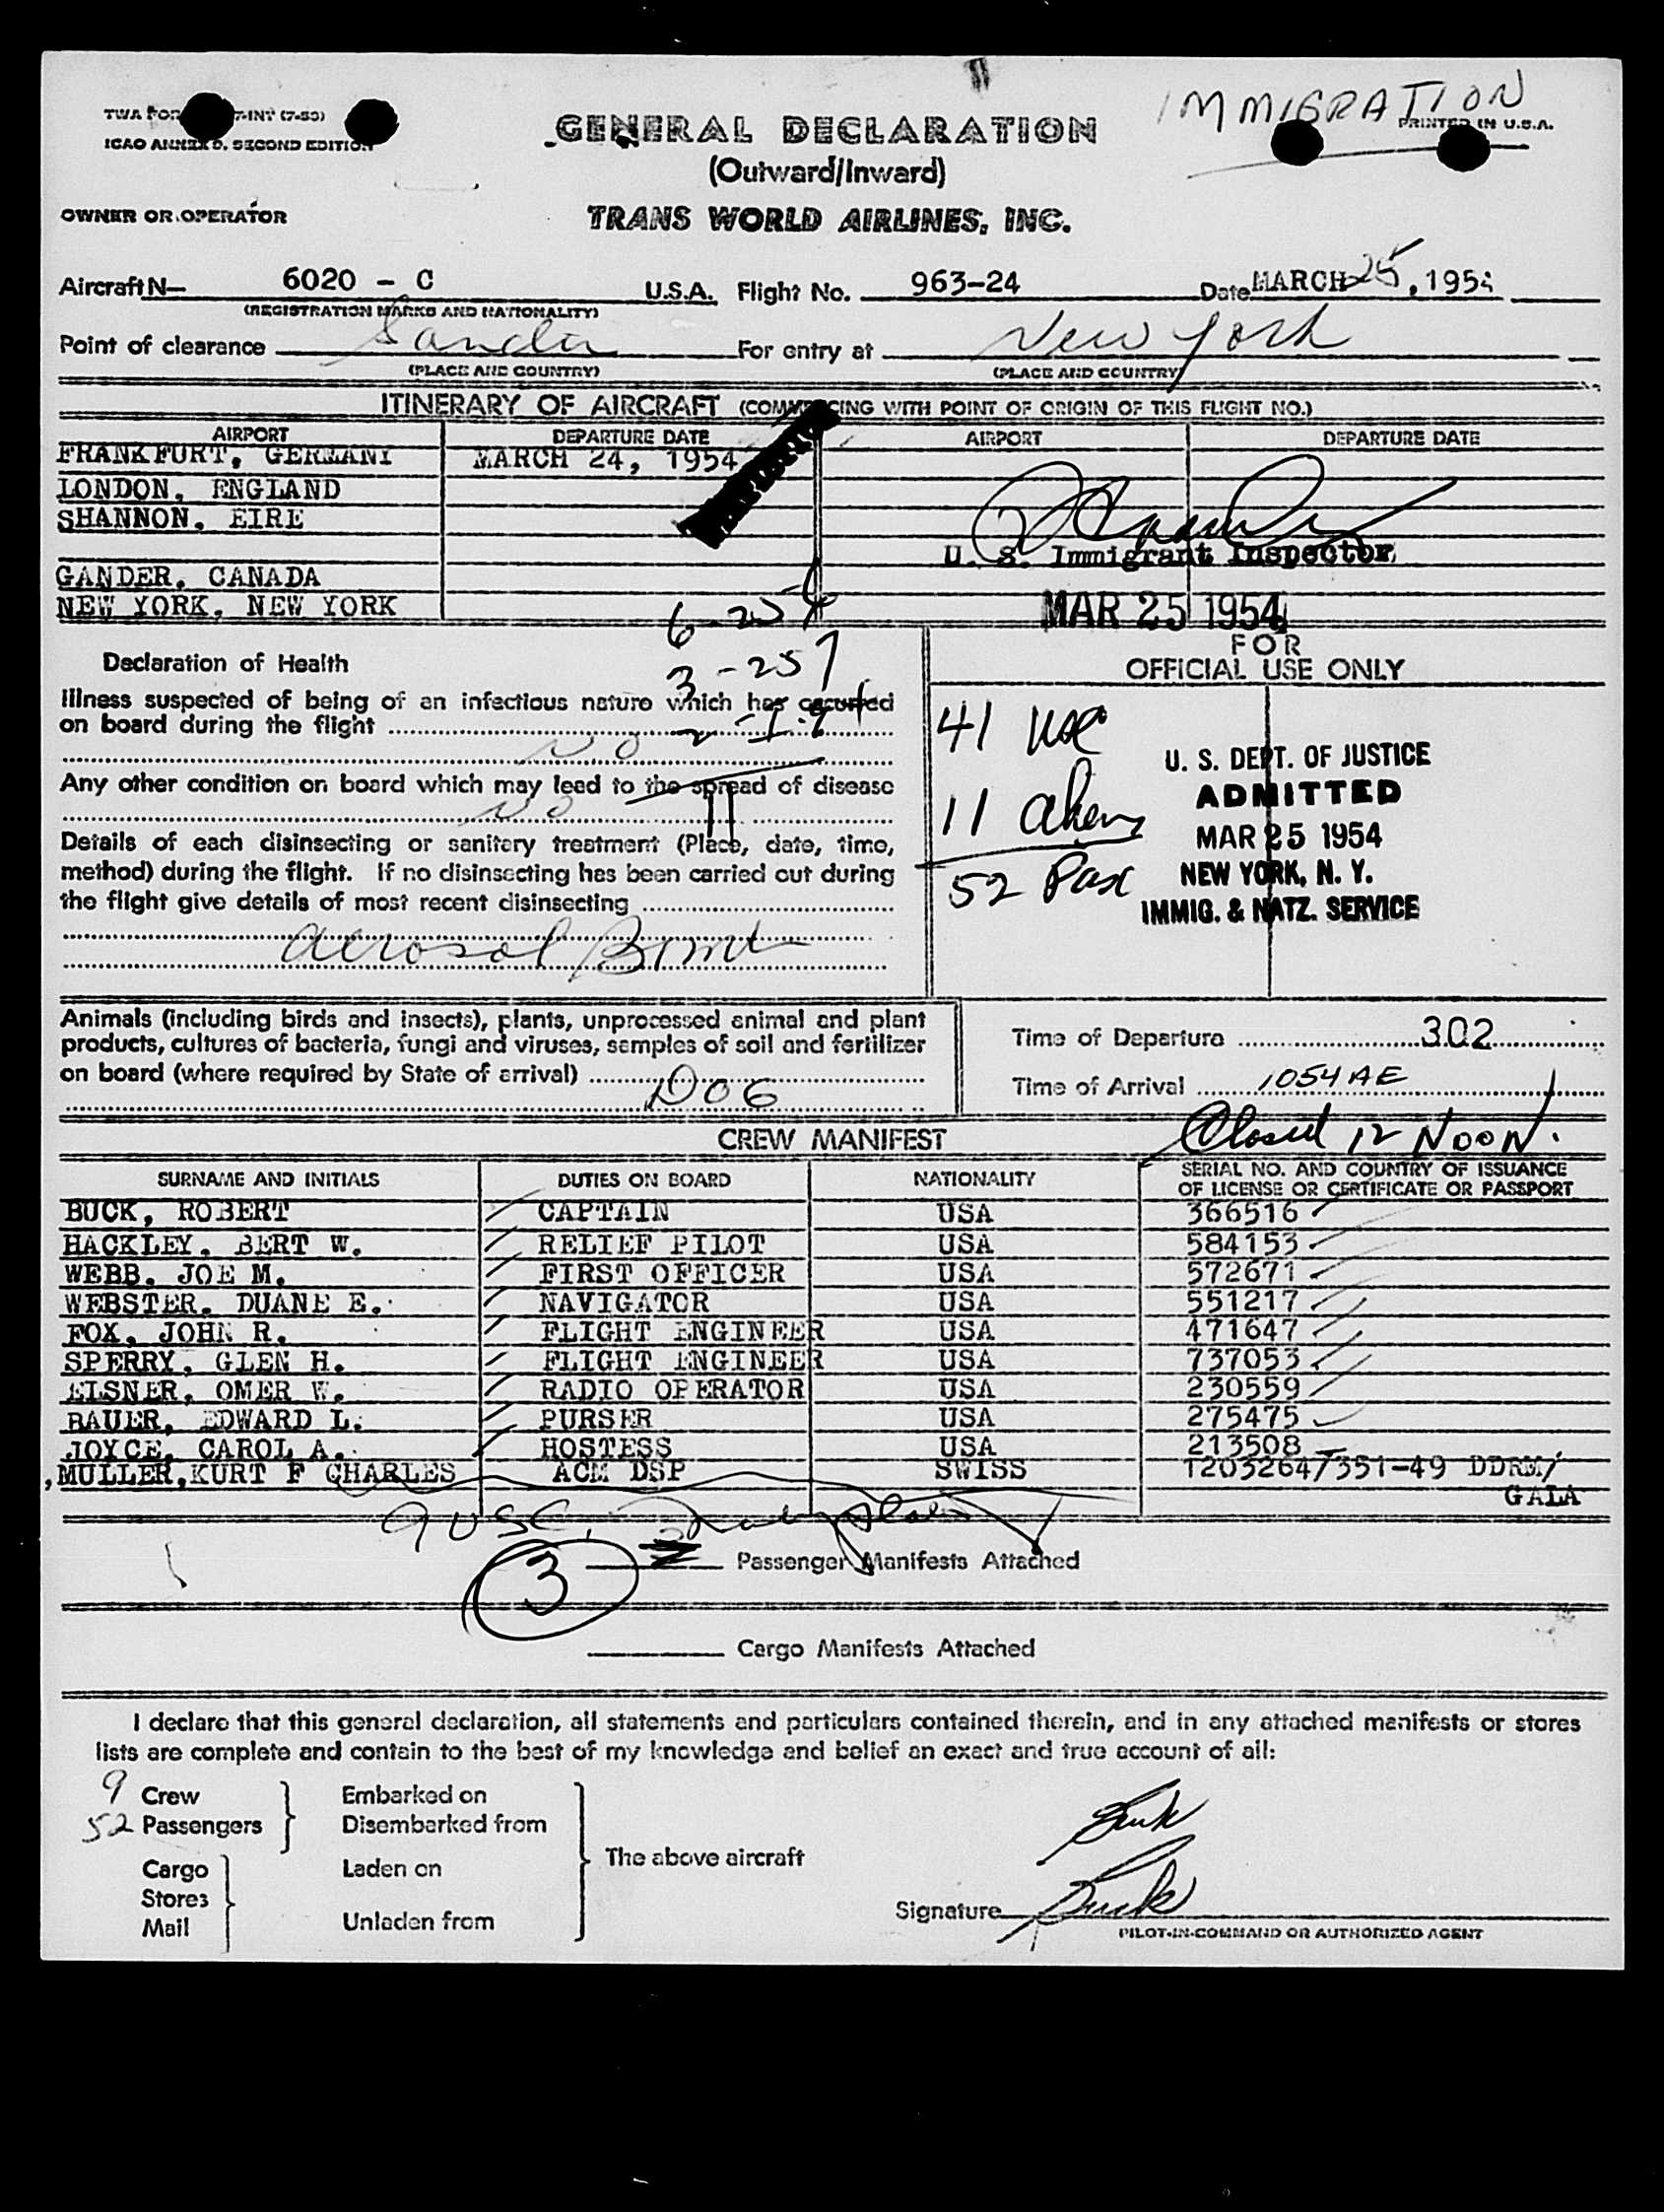 IMMIGRATION
PRINTED IN U.S.A.
ICAO ANNEX 9, SECOND EDITION
GENERAL DECLARATION
(Outward/Inward)
OWNER OR OPERATOR
TRANS WORLD AIRLINES, INC.
Aircraft N— 6020 - C U.S.A. Flight No. 963-24 Date MARCH 25, 1954
(REGISTRATION MARKS AND NATIONALITY)
Point of clearance Gander For entry at New York
(PLACE AND COUNTRY) (PLACE AND COUNTRY)
ITINERARY OF AIRCRAFT (COMMENCING WITH POINT OF ORIGIN OF THIS FLIGHT NO.)
AIRPORT DEPARTURE DATE AIRPORT DEPARTURE DATE
FRANKFURT, GERMANY MARCH 24, 1954
LONDON, ENGLAND
SHANNON, EIRE
U. S. Immigrant Inspector
GANDER, CANADA
NEW YORK, NEW YORK
MAR 25 1954
FOR
OFFICIAL USE ONLY
Declaration of Health
Illness suspected of being of an infectious nature which has occurred
on board during the flight
No
Any other condition on board which may lead to the spread of disease
No
Details of each disinsecting or sanitary treatment (Place, date, time,
method) during the flight. If no disinsecting has been carried out during
the flight give details of most recent disinsecting
aerosol Bomb
41 USC
11 aliens
52 Pax
U. S. DEPT. OF JUSTICE
ADMITTED
MAR 25 1954
NEW YORK, N. Y.
IMMIG. & NATZ. SERVICE
Animals (including birds and insects), plants, unprocessed animal and plant
products, cultures of bacteria, fungi and viruses, samples of soil and fertilizer
on board (where required by State of arrival)
DOG
Time of Departure 302
Time of Arrival 1054 AE
Closed 12 NOON.
CREW MANIFEST
SURNAME AND INITIALS DUTIES ON BOARD NATIONALITY SERIAL NO. AND COUNTRY OF ISSUANCE
OF LICENSE OR CERTIFICATE OR PASSPORT
BUCK, ROBERT CAPTAIN USA 366516
HACKLEY, BERT W. RELIEF PILOT USA 584153
WEBB, JOE M. FIRST OFFICER USA 572671
WEBSTER, DUANE E. NAVIGATOR USA 551217
FOX, JOHN R. FLIGHT ENGINEER USA 471647
SPERRY, GLEN H. FLIGHT ENGINEER USA 737053
ELSNER, OMER W. RADIO OPERATOR USA 230559
BAUER, EDWARD L. PURSER USA 275475
JOYCE, CAROL A. HOSTESS USA 213508
MULLER, KURT F CHARLES ACM DSP SWISS 1203264/351-49 DDRM/
GALA
9 USC
3 Passenger Manifests Attached
Cargo Manifests Attached
I declare that this general declaration, all statements and particulars contained therein, and in any attached manifests or stores
lists are complete and contain to the best of my knowledge and belief an exact and true account of all:
9 Crew Embarked on
52 Passengers Disembarked from
The above aircraft
Cargo Laden on
Stores
Mail Unladen from
Buck
Signature Buck
PILOT-IN-COMMAND OR AUTHORIZED AGENT